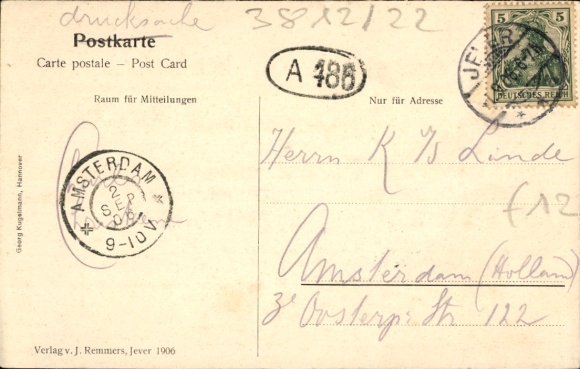 drucksache
3812/22
Postkarte
Carte postale – Post Card
A 486
5 5
DEUTSCHES REICH
JEVER
Raum für Mitteilungen
Nur für Adresse
Herrn K
Linde
AMSTERDAM
2 SEP
9-10V
f12
Amsterdam (Holland)
3e Oosterp. Str 122
Georg Kugelmann, Hannover
Verlag v. J. Remmers, Jever 1906